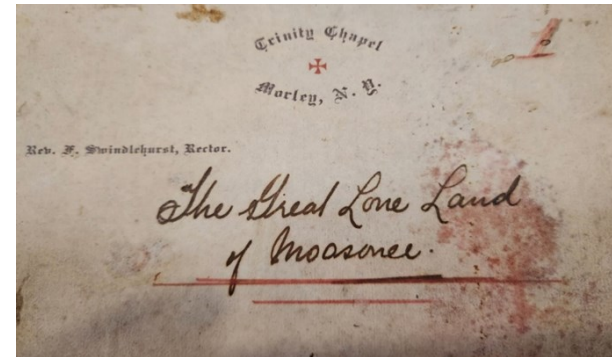 Trinity Chapel
1
Morley, N. Y.
Rev. F. Swindlehurst, Rector.
The Great Lone Land
of Moosonee.